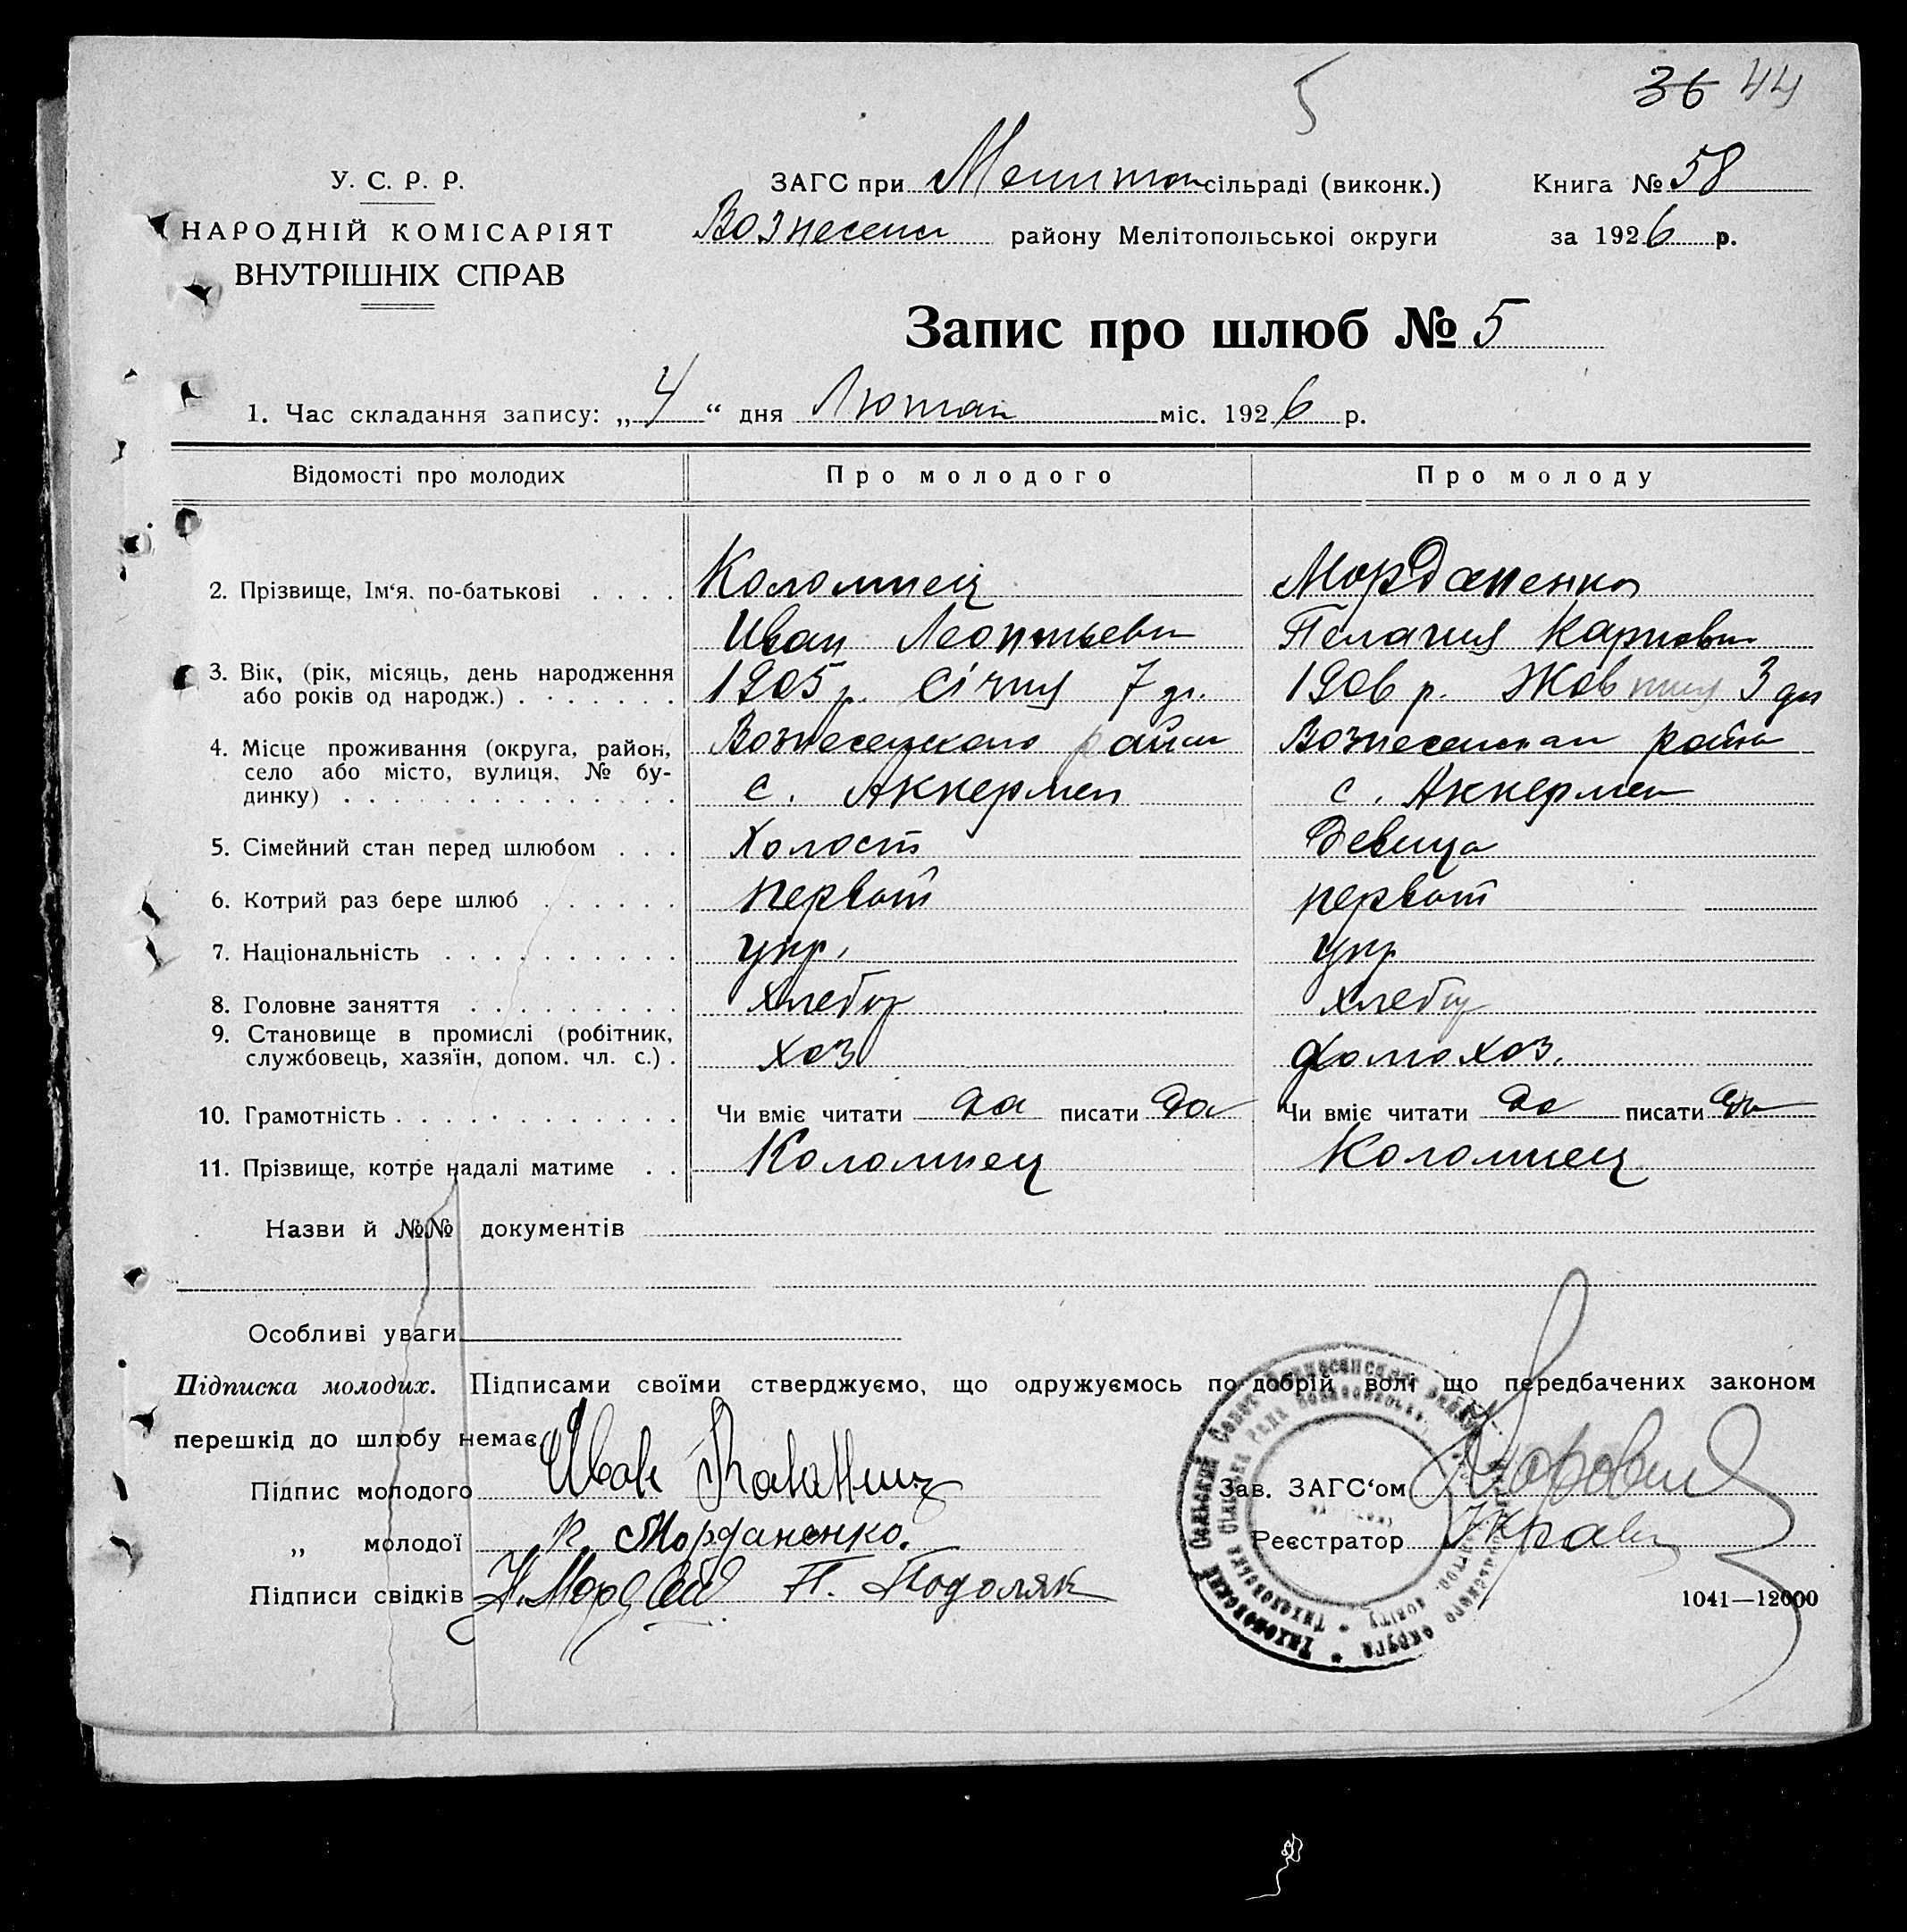 5
36 44
У. С. Р. Р.
НАРОДНІЙ КОМІСАРІЯТ
ВНУТРІШНІХ СПРАВ
ЗАГС при сільраді (виконк.)
Вознесенс району Мелітопольськоі округи
Книга № 58
за 1926 р.
Запис про шлюб № 5
1. Час складання запису: „4“ дня Лютаго міс. 1926 р.
Відомості про молодих Про молодого Про молоду
2. Прізвище, Ім‘я. по-батькові . . . . Коломиец Морданенко
Иван Леонтьеви Пелагия Карповн
3. Вік, (рік, місяць, день народження
або років од народж.) . . . . . . . 1905 р. Січня 7 дн. 1906 р. Жовтня 3 дн
4. Місце проживання (округа, район,
село або місто, вулиця, № бу-
динку) . . . . . . . . . . . . . .
Вознесенского район Вознесенскаг район
с. Аккермен с. Аккермен
5. Сімейний стан перед шлюбом . . . Холост Девица
6. Котрий раз бере шлюб . . . . . . первый первый
7. Національність . . . . . . . . . . укр. укр
8. Головне заняття . . . . . . . . . хлебор хлебор
9. Становище в промислі (робітник,
службовець, хазяїн, допом. чл. с.) . хоз домохоз.
10. Грамотність . . . . . . . . . . . . Чи вміє читати да писати да Чи вміє читати да писати да
11. Прізвище, котре надалі матиме . . Коломиец Коломиец
Назви й №№ документів
Особливі уваги
Підписка молодих. Підписами своїми стверджуємо, що одружуємось по добрій волі що передбачених законом
перешкід до шлюбу немає
Підпис молодого Иван
„ молодої П. Морданенко.
Підписи свідків П. Подоляк
Зав. ЗАГС‘ом
Реєстратор
1041—12000
Тихоновский Сельский Совет